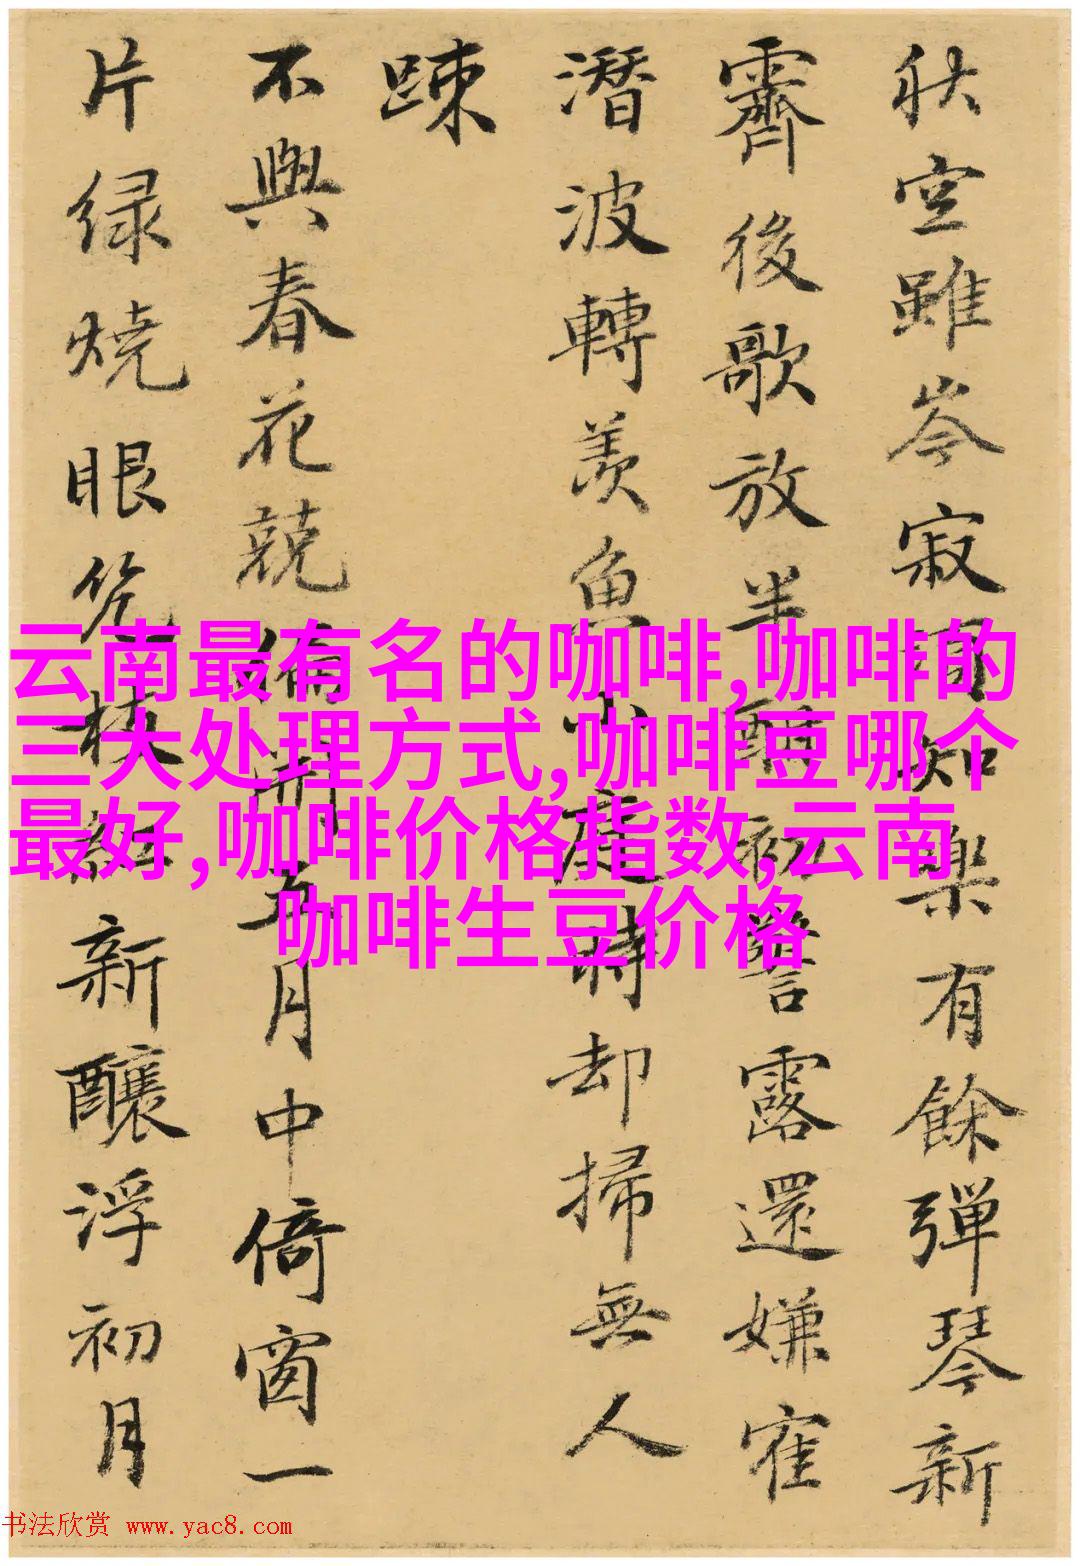 秋空雖岑寂知樂有餘彈琴新
霽後歌放半酣初警露還嫌寉
潛波轉羨魚小庭時却掃無人
踈
不與春花競偏開五月中倚窗一
片绿燒眼枝紅新釀浮初月
云南最有名的咖啡,咖啡的
三大处理方式,咖啡豆哪个
最好,咖啡价格指数,云南
咖啡生豆价格
书法欣赏 www.yac8.com